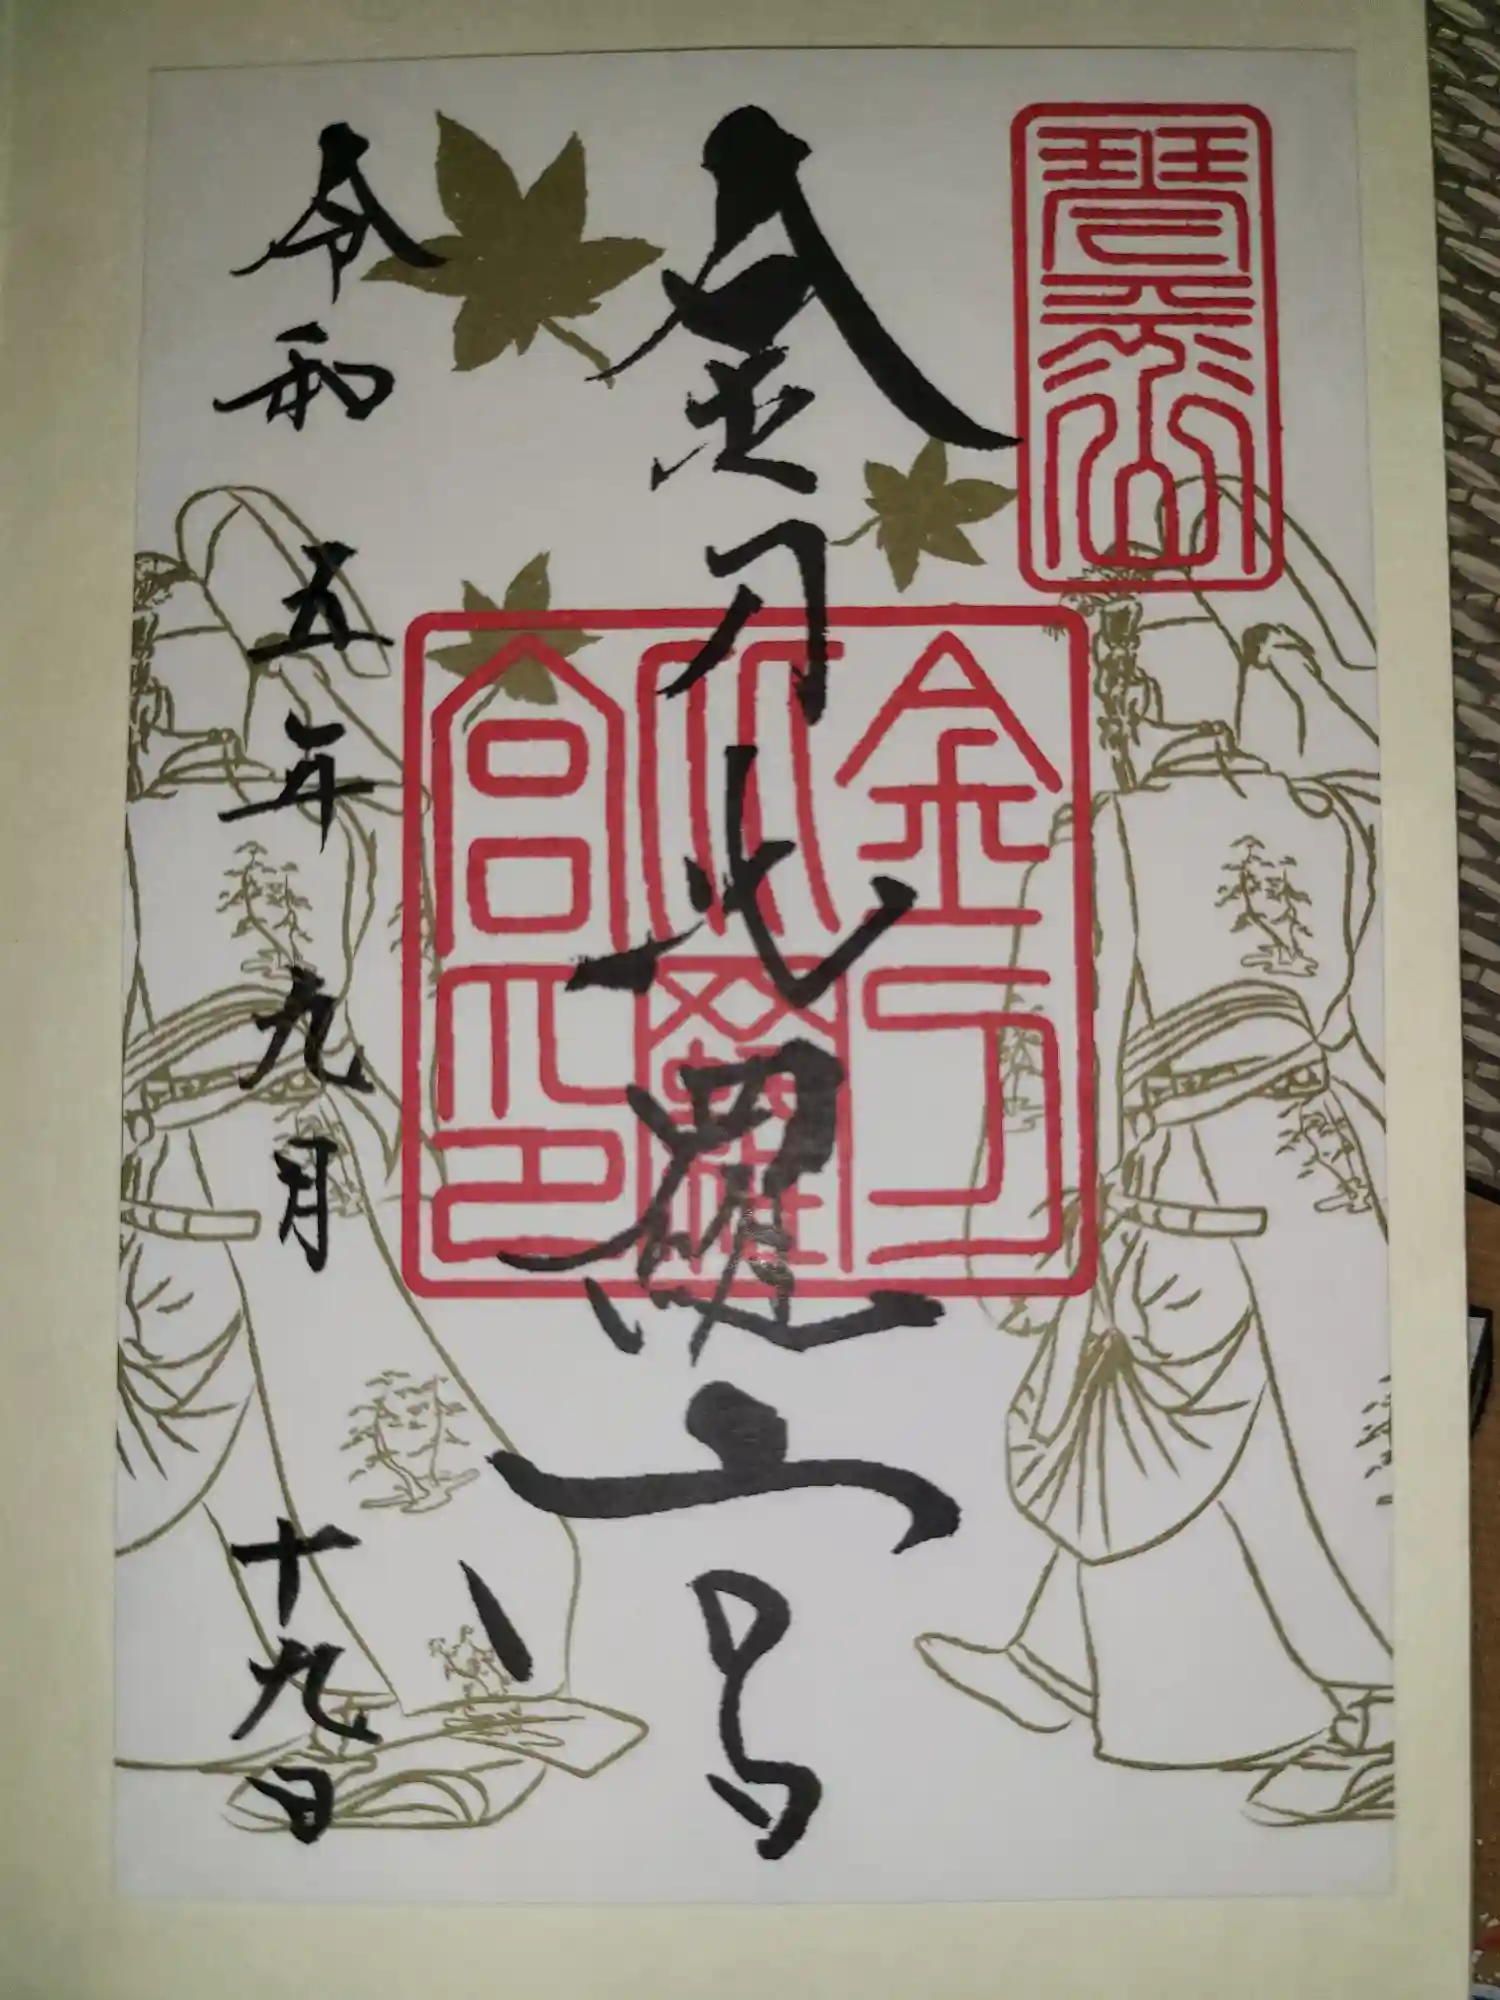 琴平山
金刀比羅宮
金刀比羅宮印
令和五年九月十九日